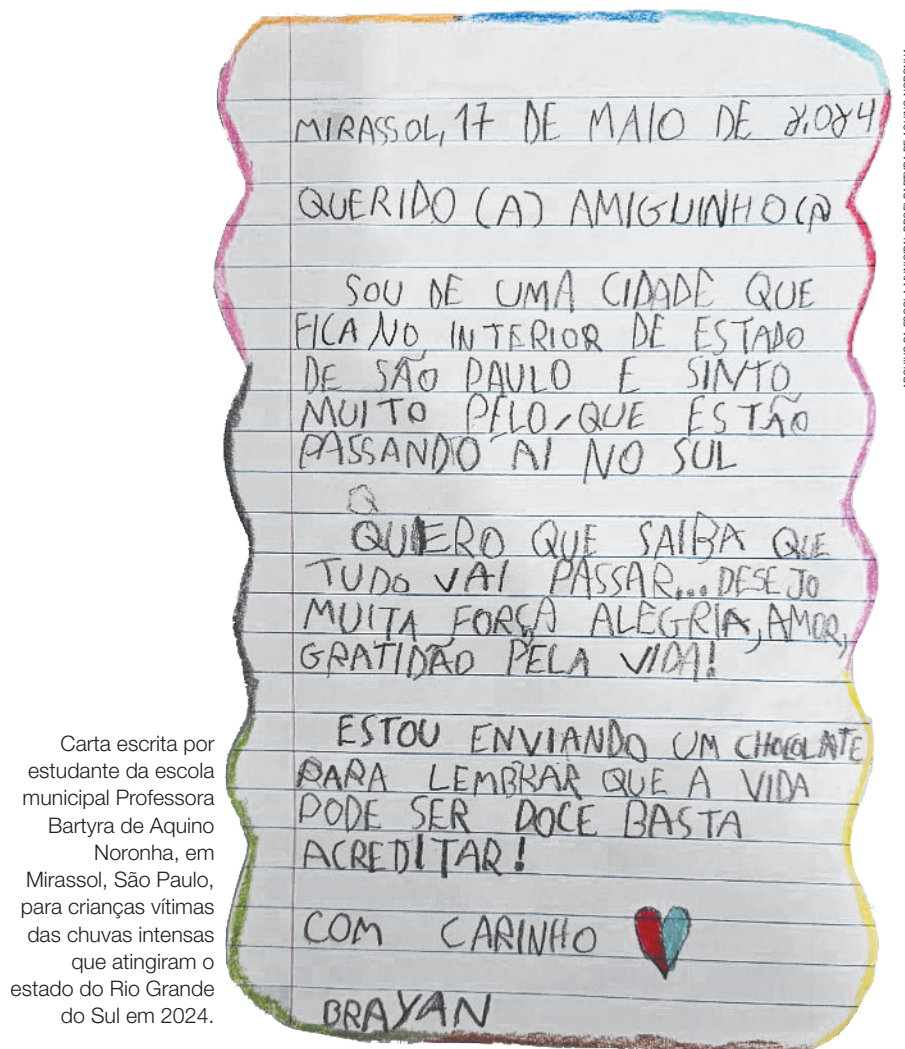 MIRASSOL, 17 DE MAIO DE 2.024
QUERIDO (A) AMIGUINHO (A)
SOU DE UMA CIDADE QUE
FICA NO INTERIOR DE ESTADO
DE SÃO PAULO E SINTO
MUITO PELO QUE ESTÃO
PASSANDO AI NO SUL
Q
QUERO QUE SAIBA QUE
TUDO VAI PASSAR... DESEJO
MUITA FORÇA ALEGRIA, AMOR,
GRATIDÃO PELA VIDA!
ESTOU ENVIANDO UM CHOCOLATE
PARA LEMBRAR QUE A VIDA
PODE SER DOCE BASTA
ACREDITAR!
COM CARINHO
BRAYAN
Carta escrita por
estudante da escola
municipal Professora
Bartyra de Aquino
Noronha, em
Mirassol, São Paulo,
para crianças vítimas
das chuvas intensas
que atingiram o
estado do Rio Grande
do Sul em 2024.